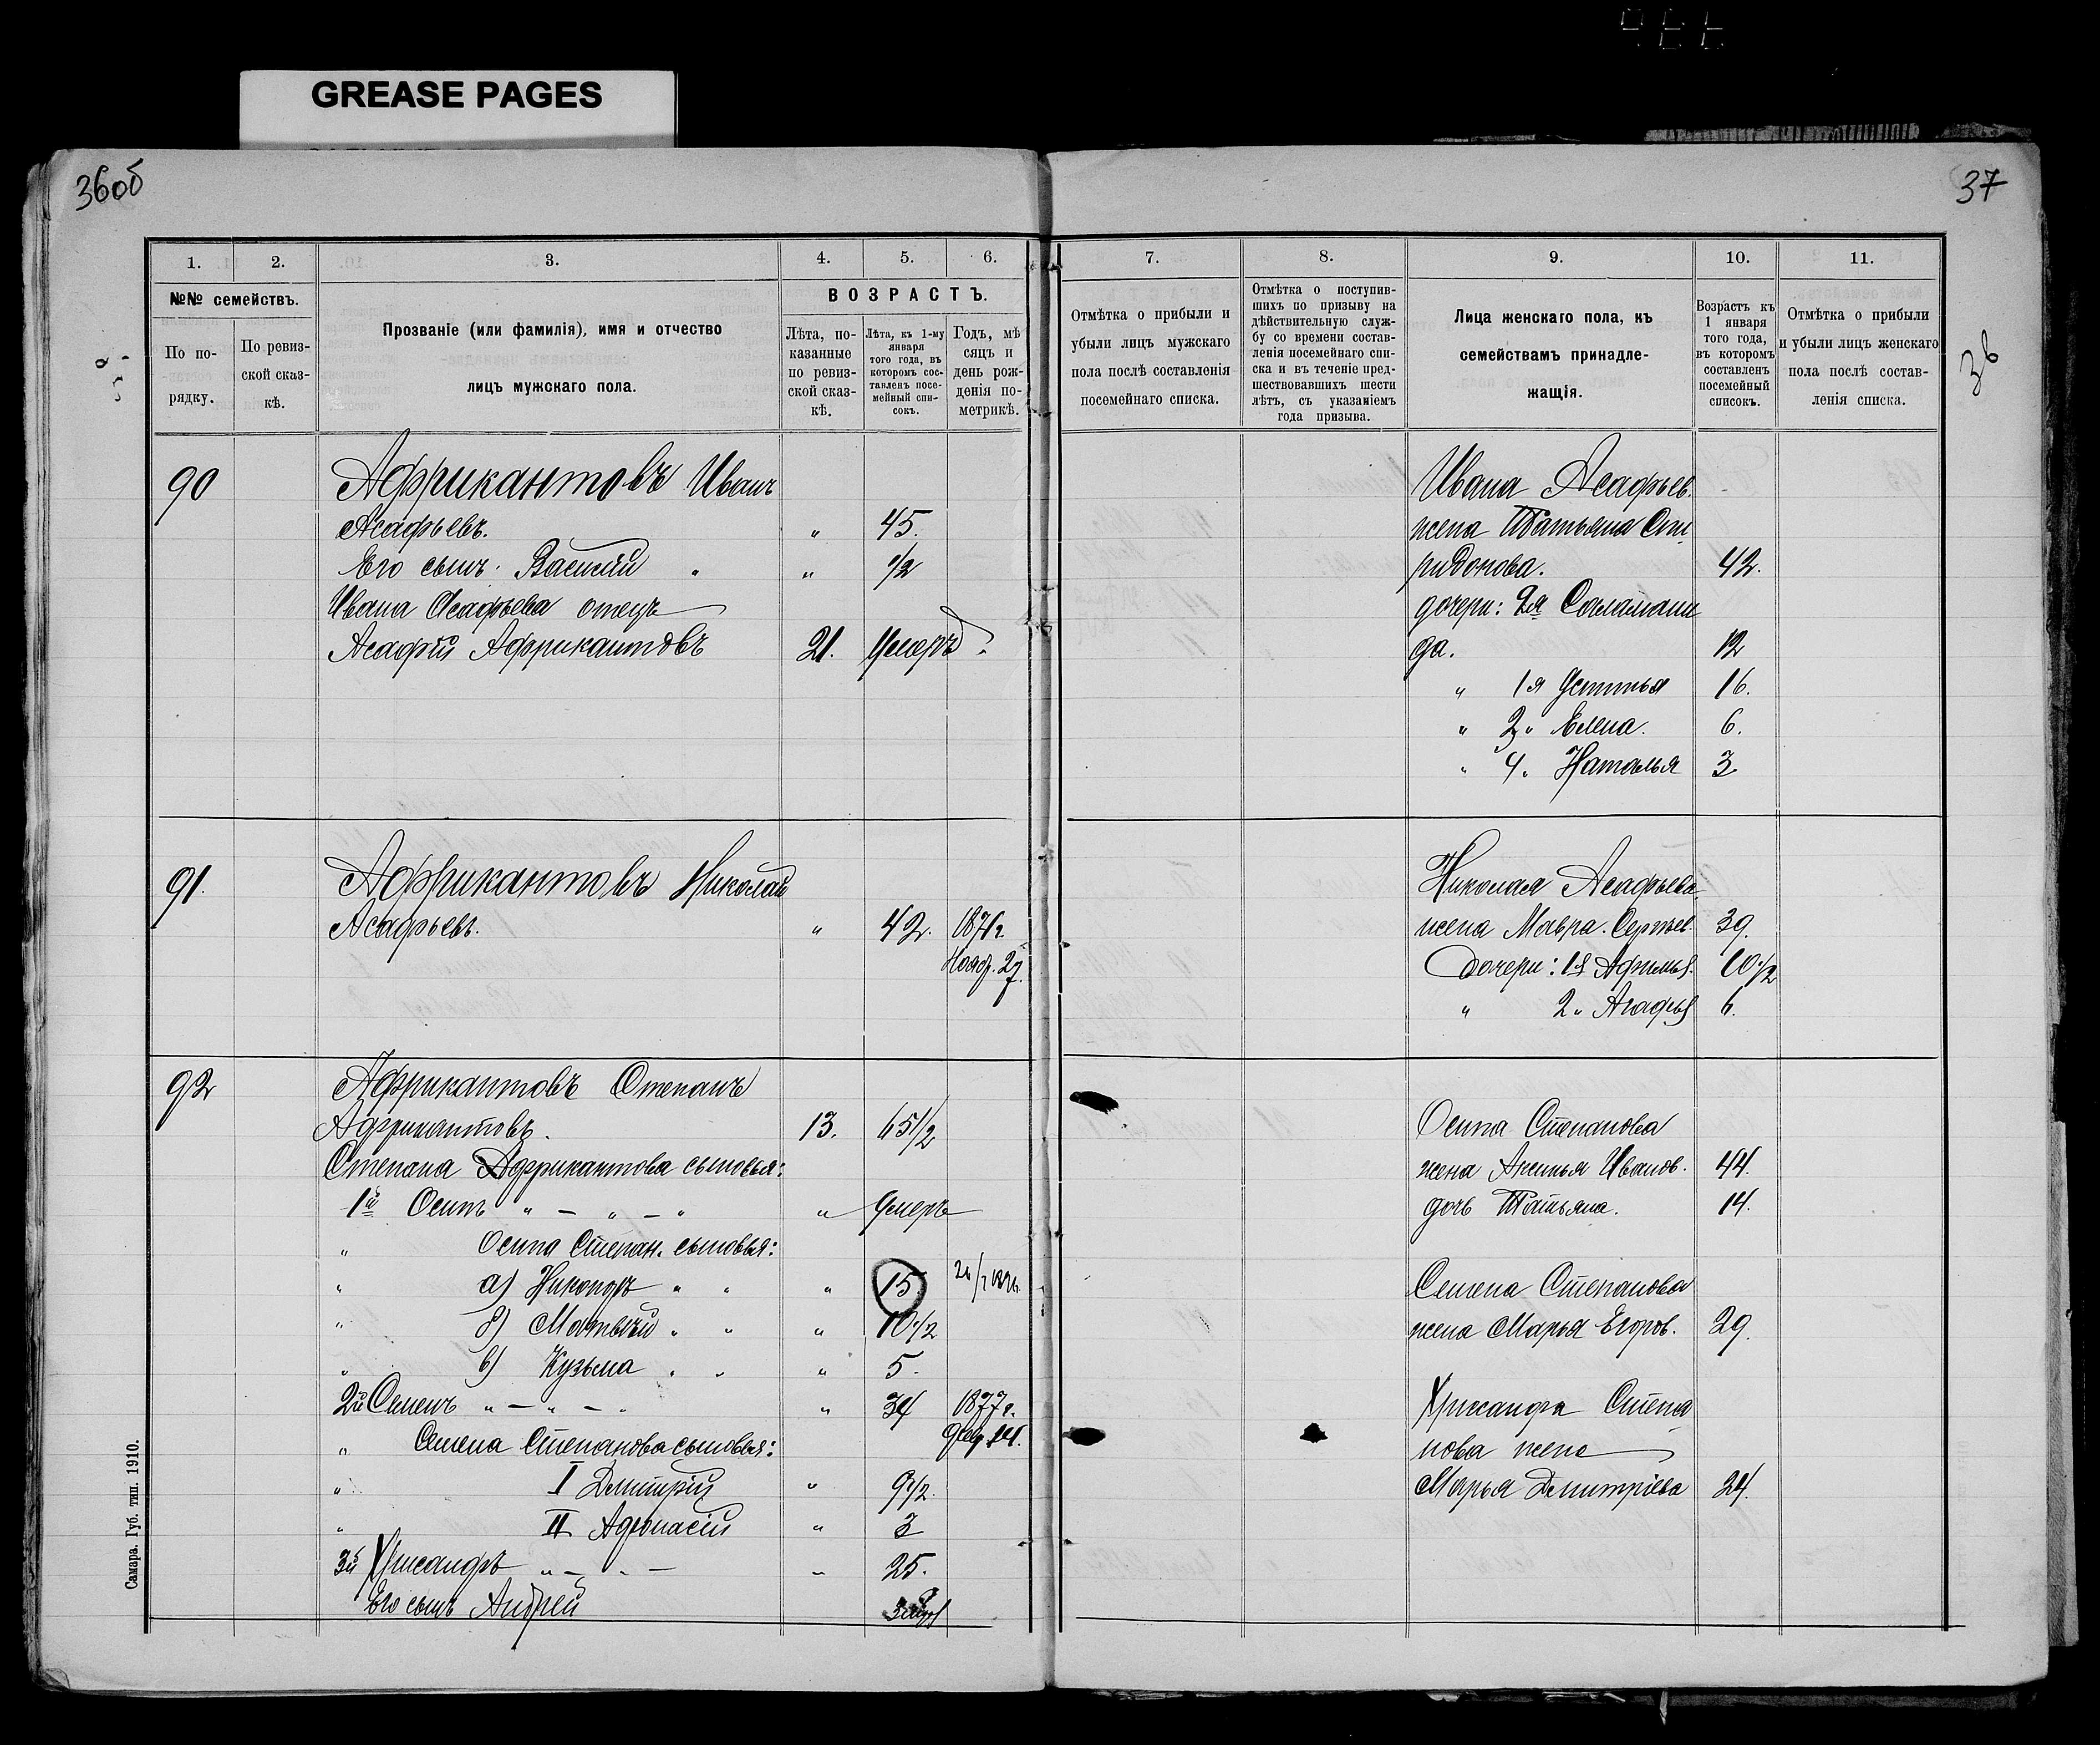 GREASE PAGES
36об
37
36
1.
2.
3.
4.
5.
6.
№№ семействъ.
По по-
рядку.
По ревиз-
ской сказ-
кѣ.
Прозваніе (или фамилія), имя и отчество
лицъ мужскаго пола.
ВОЗРАСТЪ.
Лѣта, по-
казанные
по ревиз-
ской сказ-
кѣ.
Лѣта, къ 1-му
января
того года, въ
которомъ сос-
тавленъ посе-
мейный спи-
сокъ.
Годъ, мѣ
сяцъ и
день рож-
денія по-
метрикѣ.
90
Африкантовъ Иванъ
Асафьевъ. „ 45.
Его сынъ: Василій „ „ 1/2
Ивана Асафьева отецъ
Асафій Африкантовъ 21. Умеръ
91.
Африкантовъ Николай
Асафьевъ. „ 42. 1871г.
Нояб. 27.
92
Африкантовъ Степанъ
Африкантовъ. 13. 65 1/2
Степана Африкантова сыновья:
1й Осипъ „ — „ — „ „ Умеръ
„ Осипа Степан. сыновья:
„ а) Никоноръ „ „ „ 15
„ б) Матвѣй „ „ „ 10 1/2
„ в) Кузьма „ „ „ 5.
2й Семенъ „ — „ — „ „ 34 1877г.
„ Семена Степанова сыновья:
„ I Дмитрій „ 9 1/2
„ II Афонасій „ 3
3й Хрисанфъ „ — „ — „ 25.
Его сынъ Андрей
Самара. Губ. тип. 1910.
7.
8.
9.
10.
11.
Отмѣтка о прибыли и
убыли лицъ мужскаго
пола послѣ составленія
посемейнаго списка.
Отмѣтка о поступив-
шихъ по призыву на
дѣйствительную служ-
бу со времени состав-
ленія посемейнаго спи-
ска и въ теченіе пред-
шествовавшихъ шести
лѣтъ, съ указаніемъ
года призыва.
Лица женскаго пола, къ
семействамъ принадле-
жащія.
Возрастъ къ
1 января
того года,
въ которомъ
составленъ
посемейный
списокъ.
Отмѣтка о прибыли
и убыли лицъ женскаго
пола послѣ состав-
ленія списка.
Ивана Асафьев.
жена Татьяна Спи
ридонова. 42.
дочери: 2я Саламани
да. 12
„ 1я Устинья 16.
„ 3„ Елена. 6.
„ 4„ Наталья 3
Николая Асафьева
жена Мавра Сергѣев. 39.
Дочери: 1я Афимья. 10 1/2
„ 2„ Агафья 6.
Осипа Степанова
жена Аксинья Иванов. 44.
дочь Татьяна. 14.
Семена Степанова
жена Марья Егоров. 29.
Хрисанфа Степа
нова жена
Марья Дмитріева 24.